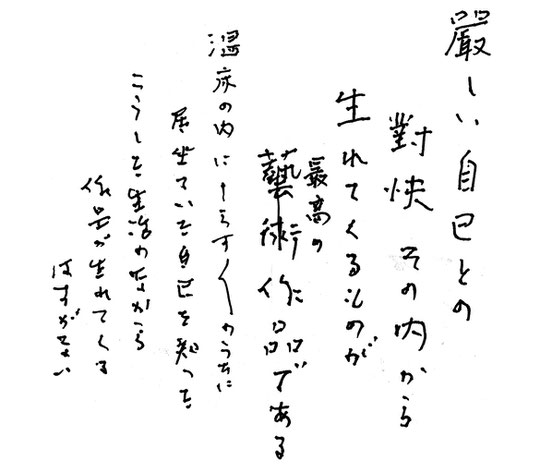 嚴しい自己との
對決 その内から
生れてくるものが
最高の
藝術作品である
温床の内にしらす〱のうちに
居坐ていた自己を知った
こうした生活のなから
作品が生れてくる
はずがない